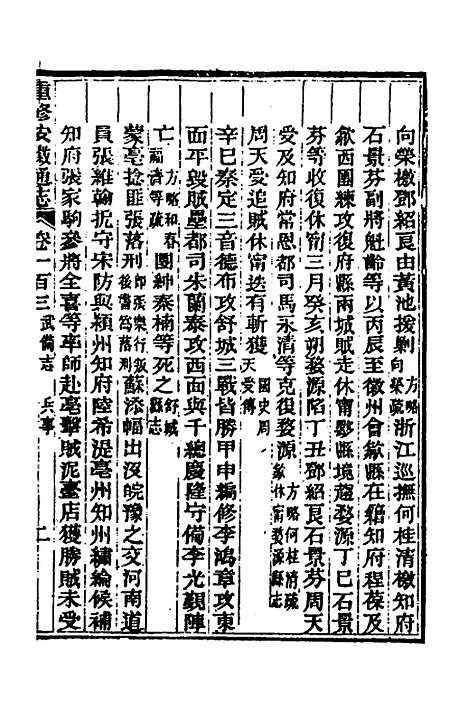 向榮檄鄧紹良由黃池援剿方略向榮疏浙江巡撫何桂清檄知府
石景芬副將魁齡等以丙辰至徽州會歙縣在籍知府程葆及
歙西團練攻復府縣兩城賊走休甯黟縣境趨婺源丁巳石景
芬等收復休甯三月癸亥朔婺源陷丁丑鄧紹良石景芬周天
受及知府常恩都司馬永清等克復婺源方略何桂清疏歙休甯婺源縣志
周天受追賊休甯迭有斬獲國史周天受傳
辛巳秦定三音德布攻舒城三戰皆勝甲申編修李鴻章攻東
面平毀賊壘都司朱蘭泰攻西面與千總慶隆守備李光觀陣
亡方略和春福濟等疏團紳秦楠等死之舒城縣志
蒙亳捻匪張落刑即張樂行叛後書爲落刑蘇添幅出沒皖豫之交河南道
員張維翰扼守宋防與潁州知府陸希湜亳州知州繡綸候補
知府張家駒參將全喜等率師赴亳擊賊泥臺店獲勝賊未受
重修安徽通志 卷一百三 武備志 兵事 二